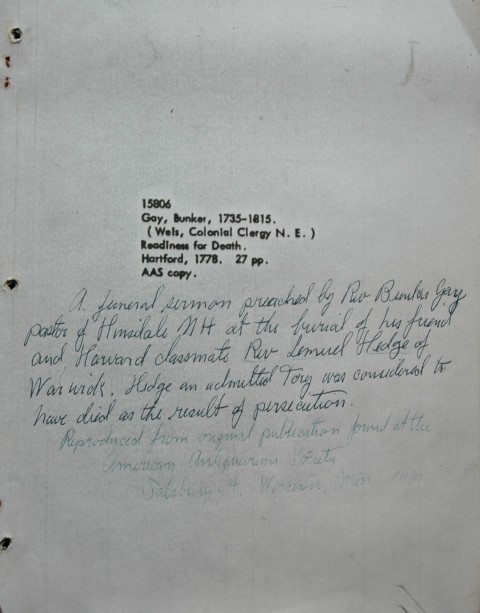 15806
Gay, Bunker, 1735-1815.
( Weis, Colonial Clergy N. E. )
Readiness for Death.
Hartford, 1778. 27 pp.
AAS copy.
A funeral sermon preached by Rev Bunker Gay
pastor of Hinsdale NH at the burial of his friend
and Harvard classmate Rev Lemuel Hedge of
Warwick. Hedge an admitted Tory was considered to
have died as the result of persecution.
Reproduced from original publication found at the
American Antiquarian Society
Salisbury St. Worcester, Mass